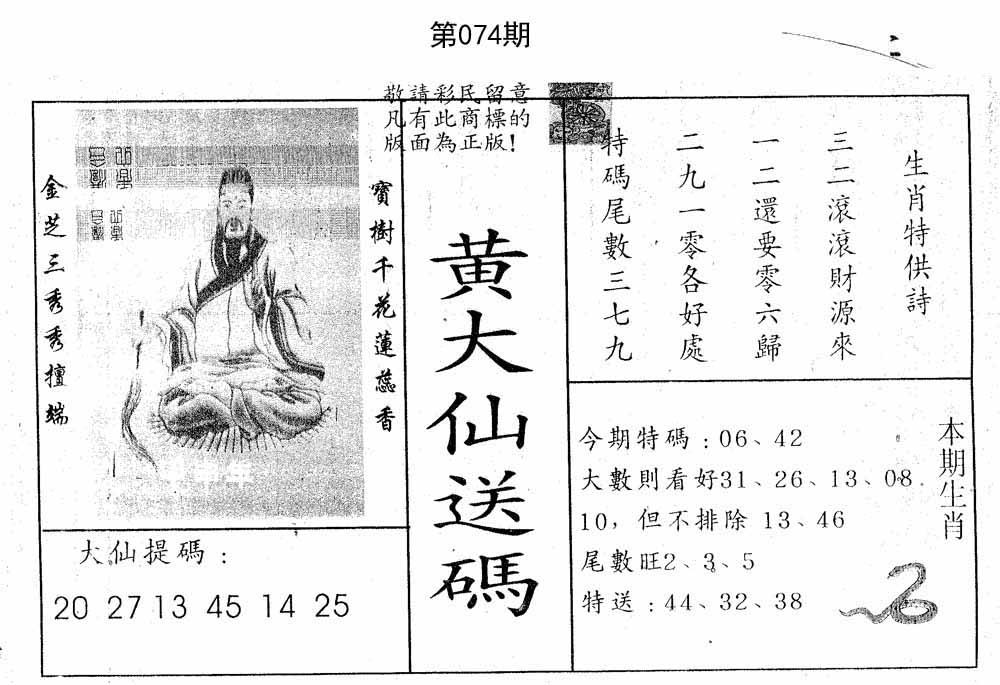 第074期
敬請彩民留意
凡有此商標的
版面為正版!
寶樹千花蓮蕊香
金芝三秀秀擅端
大仙提碼:
20 27 13 45 14 25
黄大仙送碼
生肖特供詩
三二滾滾財源來
一二還要零六歸
二九一零各好處
特碼尾數三七九
本期生肖
今期特碼:06、42
大數則看好31、26、13、08.
10，但不排除 13、46
尾數旺2、3、5
特送:44、32、38